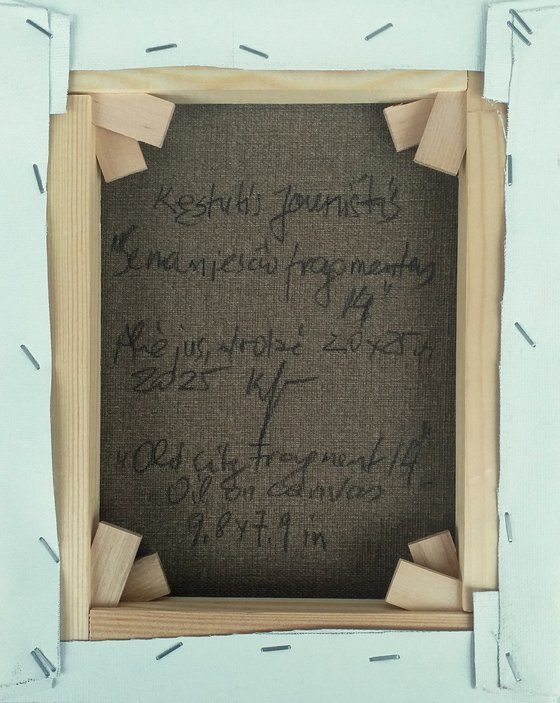 Kęstutis Jauniškis
"Senamiesčio fragmentas
14"
Aliejus, drobė 20x25cm
2025
"Old city Fragment 14"
Oil on canvas
9,8x7,9 in